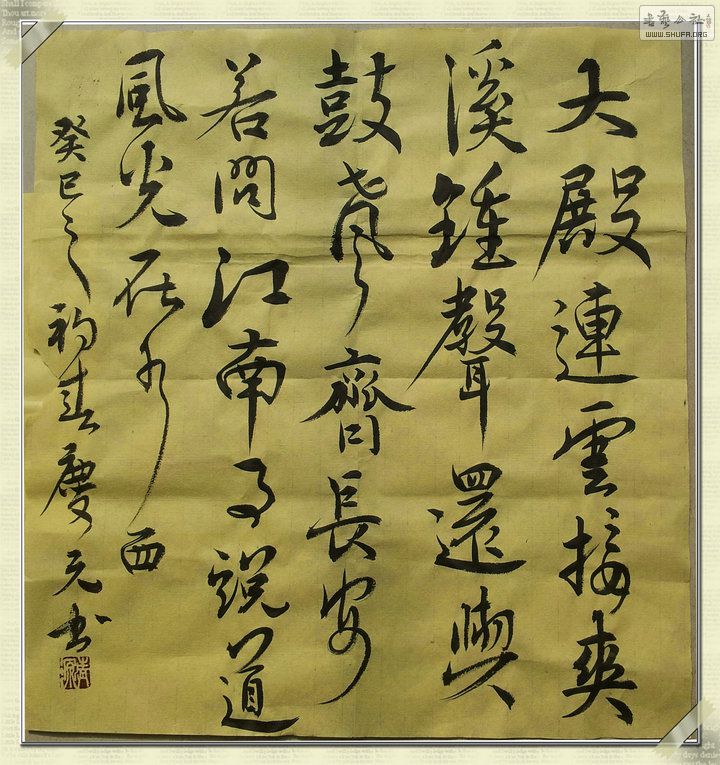 大殿連雲接爽
溪鍾聲還與
鼓聲齊長安
若問江南事說道
風光在水西
癸巳之初春慶元书
书艺公社
WWW.SHUFA.ORG